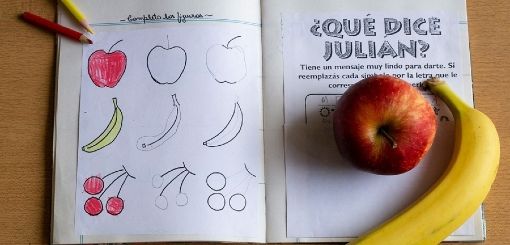 Completo las figuras
¿QUÉ DICE
JULIAN?
Tiene un mensaje muy lindo para darte. Si
reemplazás cada símbolo por la letra que le